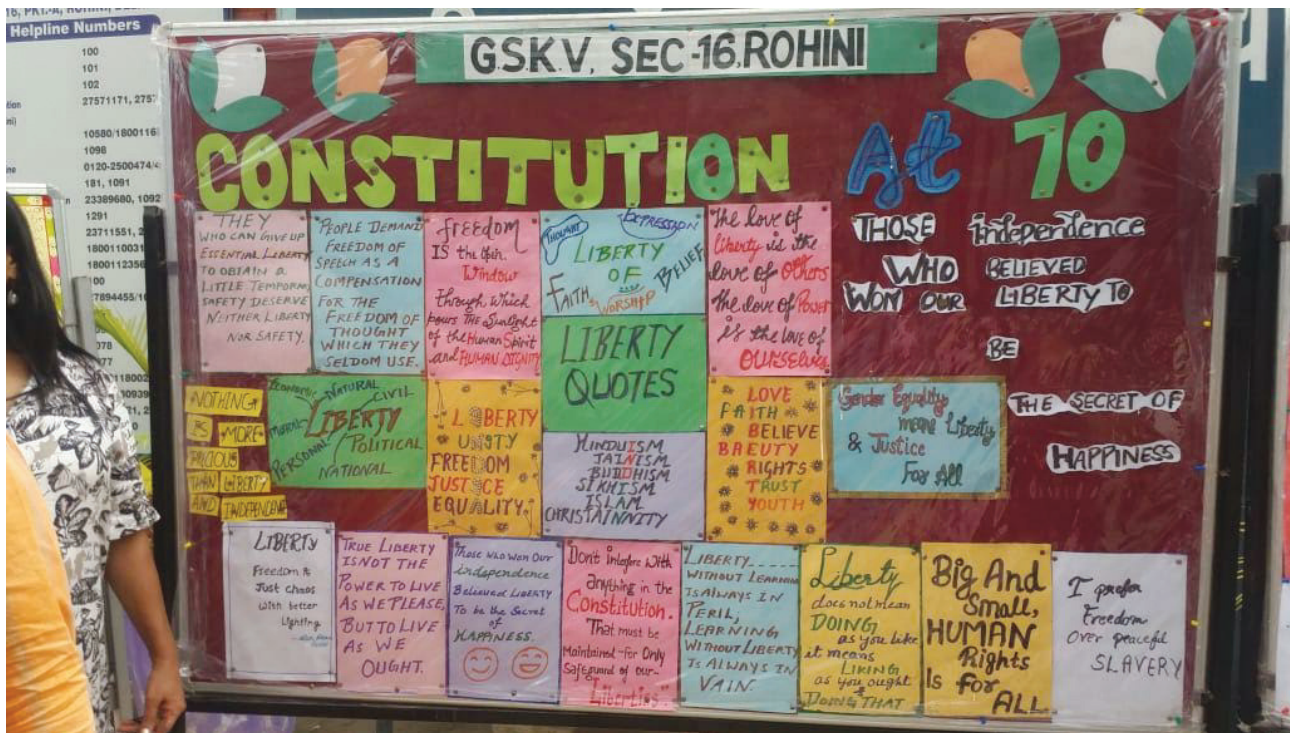 Helpline Numbers
100
101
102
27571171, 275
10580/1800116
1098
0120-2500474/
181, 1091
23389680, 1092
1291
23711551, 2
1800110031
1800112358
100
G.S.K.V, SEC-16, ROHINI
CONSTITUTION At 70
THEY
WHO CAN GIVE UP
ESSENTIAL LIBERTY
TO OBTAIN A
LITTLE TEMPORARY
SAFETY DESERVE
NEITHER LIBERTY
NOR SAFETY.
PEOPLE DEMAND
FREEDOM OF
SPEECH AS A
COMPENSATION
FOR THE
FREEDOM OF
THOUGHT
WHICH THEY
SELDOM USE.
freedom
IS the Open
Window
through which
pours the Sunlight
of the Human Spirit
and HUMAN DIGNITY
THOUGHT EXPRESSION
LIBERTY
OF BELIEF
FAITH & WORSHIP
LIBERTY
QUOTES
The love of
liberty is the
love of Others
The love of Power
is the love of
OURSELVES
THOSE independence
WHO BELIEVED
WON OUR LIBERTY TO
BE
THE SECRET OF
HAPPINESS
NOTHING
IS MORE
PRECIOUS
THAN LIBERTY
AND INDEPENDENCE
ECONOMIC NATURAL CIVIL
MORAL LIBERTY
PERSONAL POLITICAL
NATIONAL
LIBERTY
UNITY
FREEDOM
JUSTICE
EQUALITY
HINDUISM
JAINISM
BUDDHISM
SIKHISM
ISLAM
CHRISTAINNITY
LOVE
FAITH
BELIEVE
BREUTY
RIGHTS
TRUST
YOUTH
Gender Equality
means Liberty
& Justice
For All
LIBERTY
Freedom is
Just chaos
with better
Lighting
TRUE LIBERTY
IS NOT THE
POWER TO LIVE
AS WE PLEASE,
BUT TO LIVE
AS WE
OUGHT.
Those who won Our
independence
Believed LIBERTY
To be the Secret
of
HAPPINESS.
Don't interfere with
anything in the
Constitution.
That must be
Maintained-for Only
Safeguard of our-
Liberties".
LIBERTY
WITHOUT LEARNING
IS ALWAYS IN
PERIL,
LEARNING
WITHOUT LIBERTY
IS ALWAYS IN
VAIN.
Liberty
does not mean
DOING
as you like
it means
LIKING
as you ought
& DOING THAT
Big And
Small,
HUMAN
Rights
Is for
ALL
I prefer
Freedom
Over peaceful
SLAVERY